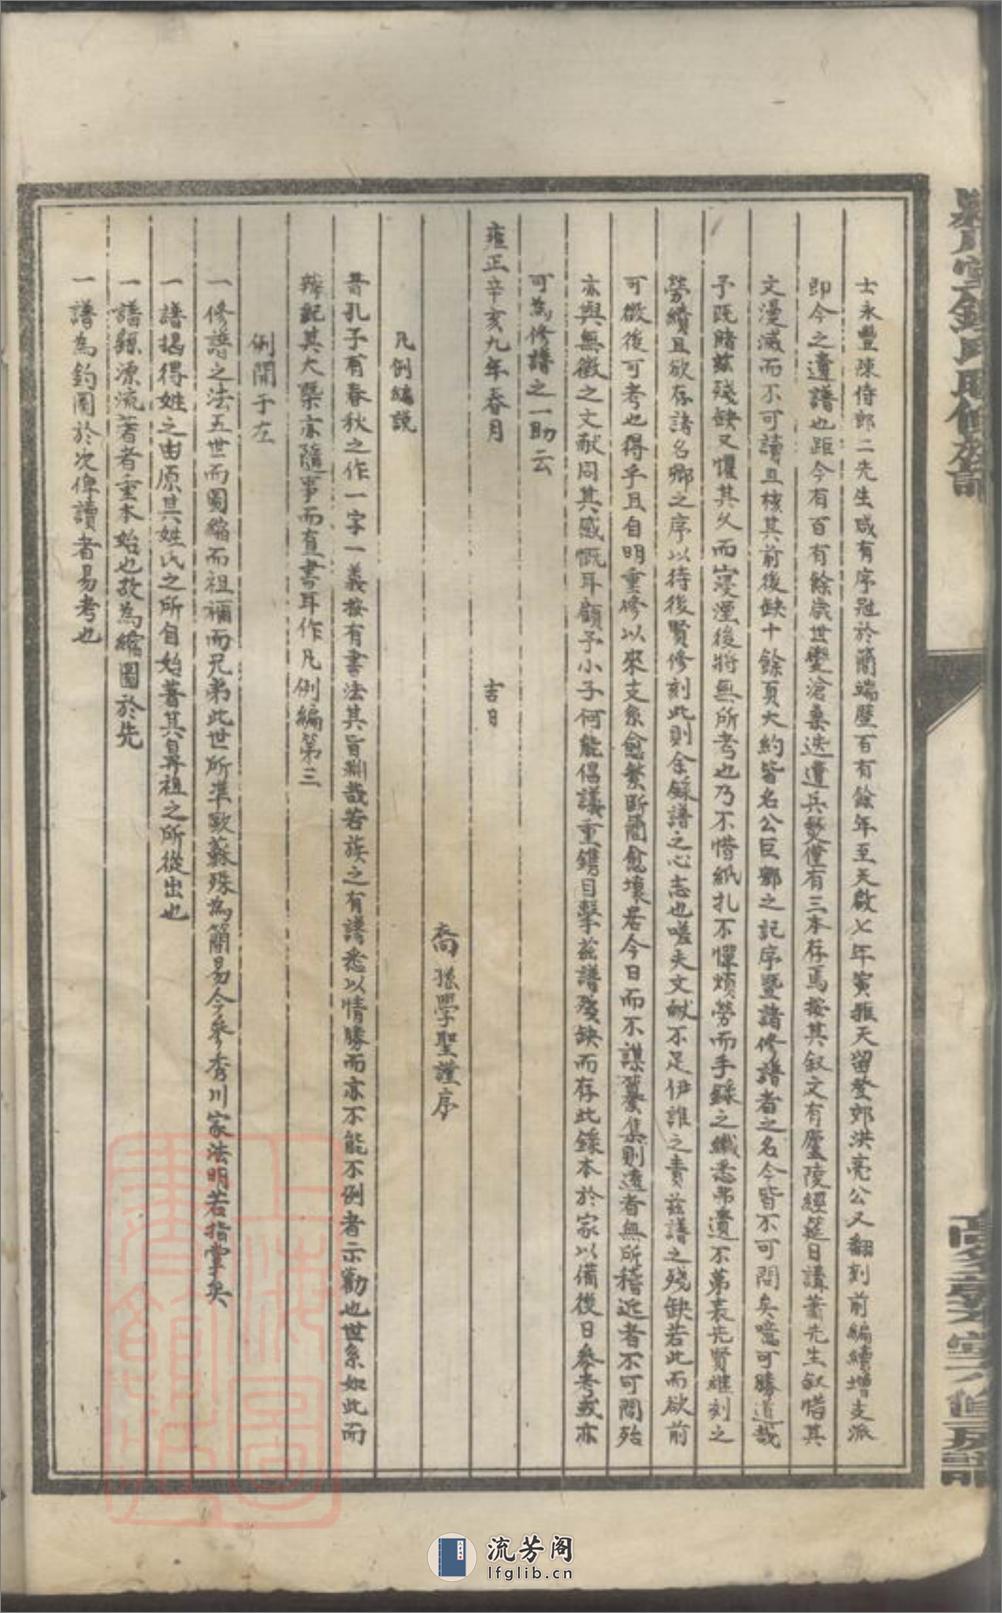 士永豐陳侍郎二先生咸有序冠於簡端歷百有餘年至天啟七年寅雅天留登郊洪亮公又翻刻前編續增支派
即今之遺譜也距今有百有餘歲世變滄桑迭遭兵燹僅有三本存焉按其叙文有廬陵經筵日講蕭先生叙惜其
文漫滅而不可讀且核其前後缺十餘頁大約皆名公巨鄉之記序暨諸修譜者之名今皆不可問矣噫可勝道哉
予既睹茲殘缺又懼其久而寖湮後將無所考也乃不惜紙扎不憚煩勞而手錄之纖悉弗遺不第表先賢繼刻之
勞績且欲存諸名鄉之序以待後賢修刻此則余錄譜之心志也嗟夫文献不足伊誰之責茲譜之殘缺若此而欲前
可徵後可考也得乎且自明重修以來支系愈繁斷簡愈壞居今日而不謀纂集則遠者無所稽近者不可問殆
亦與無徵之文献同其感慨耳顧予小子何能倡議重鐫目擊茲譜殘缺而存此錄本於家以備後日參考或亦
可為修譜之一助云
雍正辛亥九年春月 吉日
裔孫學聖謹序
凡例編說
昔孔子有春秋之作一字一義按有書法其旨淵哉若族之有譜悉以情勝而亦不能不例者示勸也世系如此而
辨記其大槩亦隨事而直書耳作凡例編第三
例開于左
一修譜之法五世而圖縮而祖禰而兄弟此世所準歐蘇殊為簡易今參秀川家法明若指掌矣
一譜揭得姓之由原其姓氏之所自始著其鼻祖之所從出也
一譜縣源流著者重本始也故為縮圖於先
一譜為鈞圖於次俾讀者易考也
上海圖書館藏
流芳阁
lfglib.cn